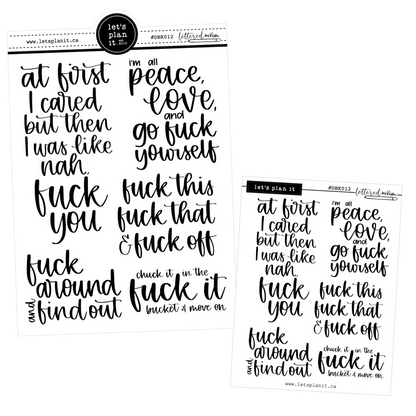 let's
plan
it.
www.letsplanit.ca
#DBK012
lettered
at first
I cared
but then
I was like
nah.
i'm all
peace,
love,
and
go fuck
yourself
fuck
you
fuck this
fuck that
& fuck off
fuck
around
and find out
chuck it in the
fuck it
bucket & move on
let's plan it
#DBK012
lettered
at first
I cared
but then
I was like
nah.
i'm all
peace,
love,
and
go fuck
yourself
fuck
you
fuck this
fuck that
& fuck off
fuck
around
and find out
chuck it in the
fuck it
bucket & move on
www.letsplanit.ca